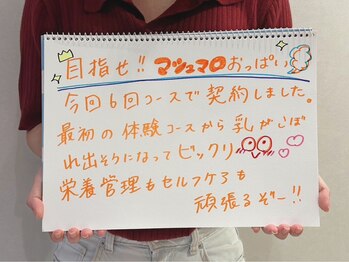 目指せ!! マシュマロおっぱい
今回6回コースで契約しました。
最初の体験コースから乳がこぼ
れ出そうになってビックリ
栄養管理もセルフケアも
頑張るぞー!!